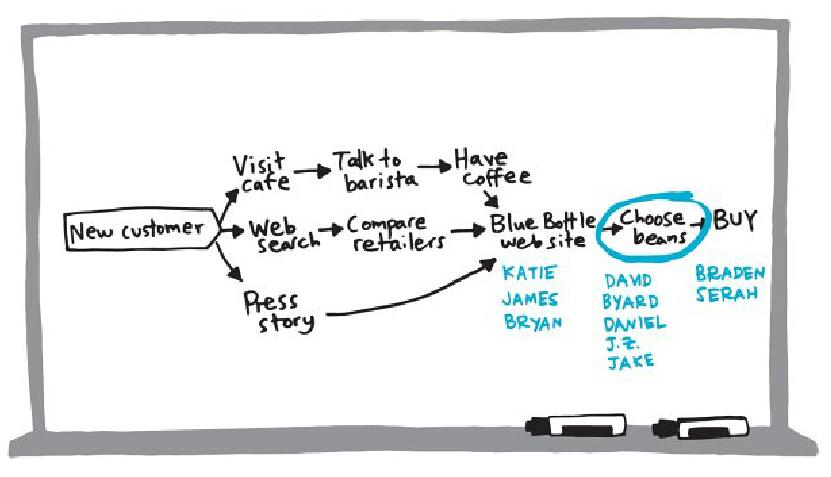 Visit
cafe
Talk to
barista
Have
coffee
New customer
Web
search
Compare
retailers
Blue Bottle
web site
Choose
beans
BUY
Press
story
KATIE
JAMES
BRYAN
DAVID
BYARD
DANIEL
J.Z.
JAKE
BRADEN
SERAH